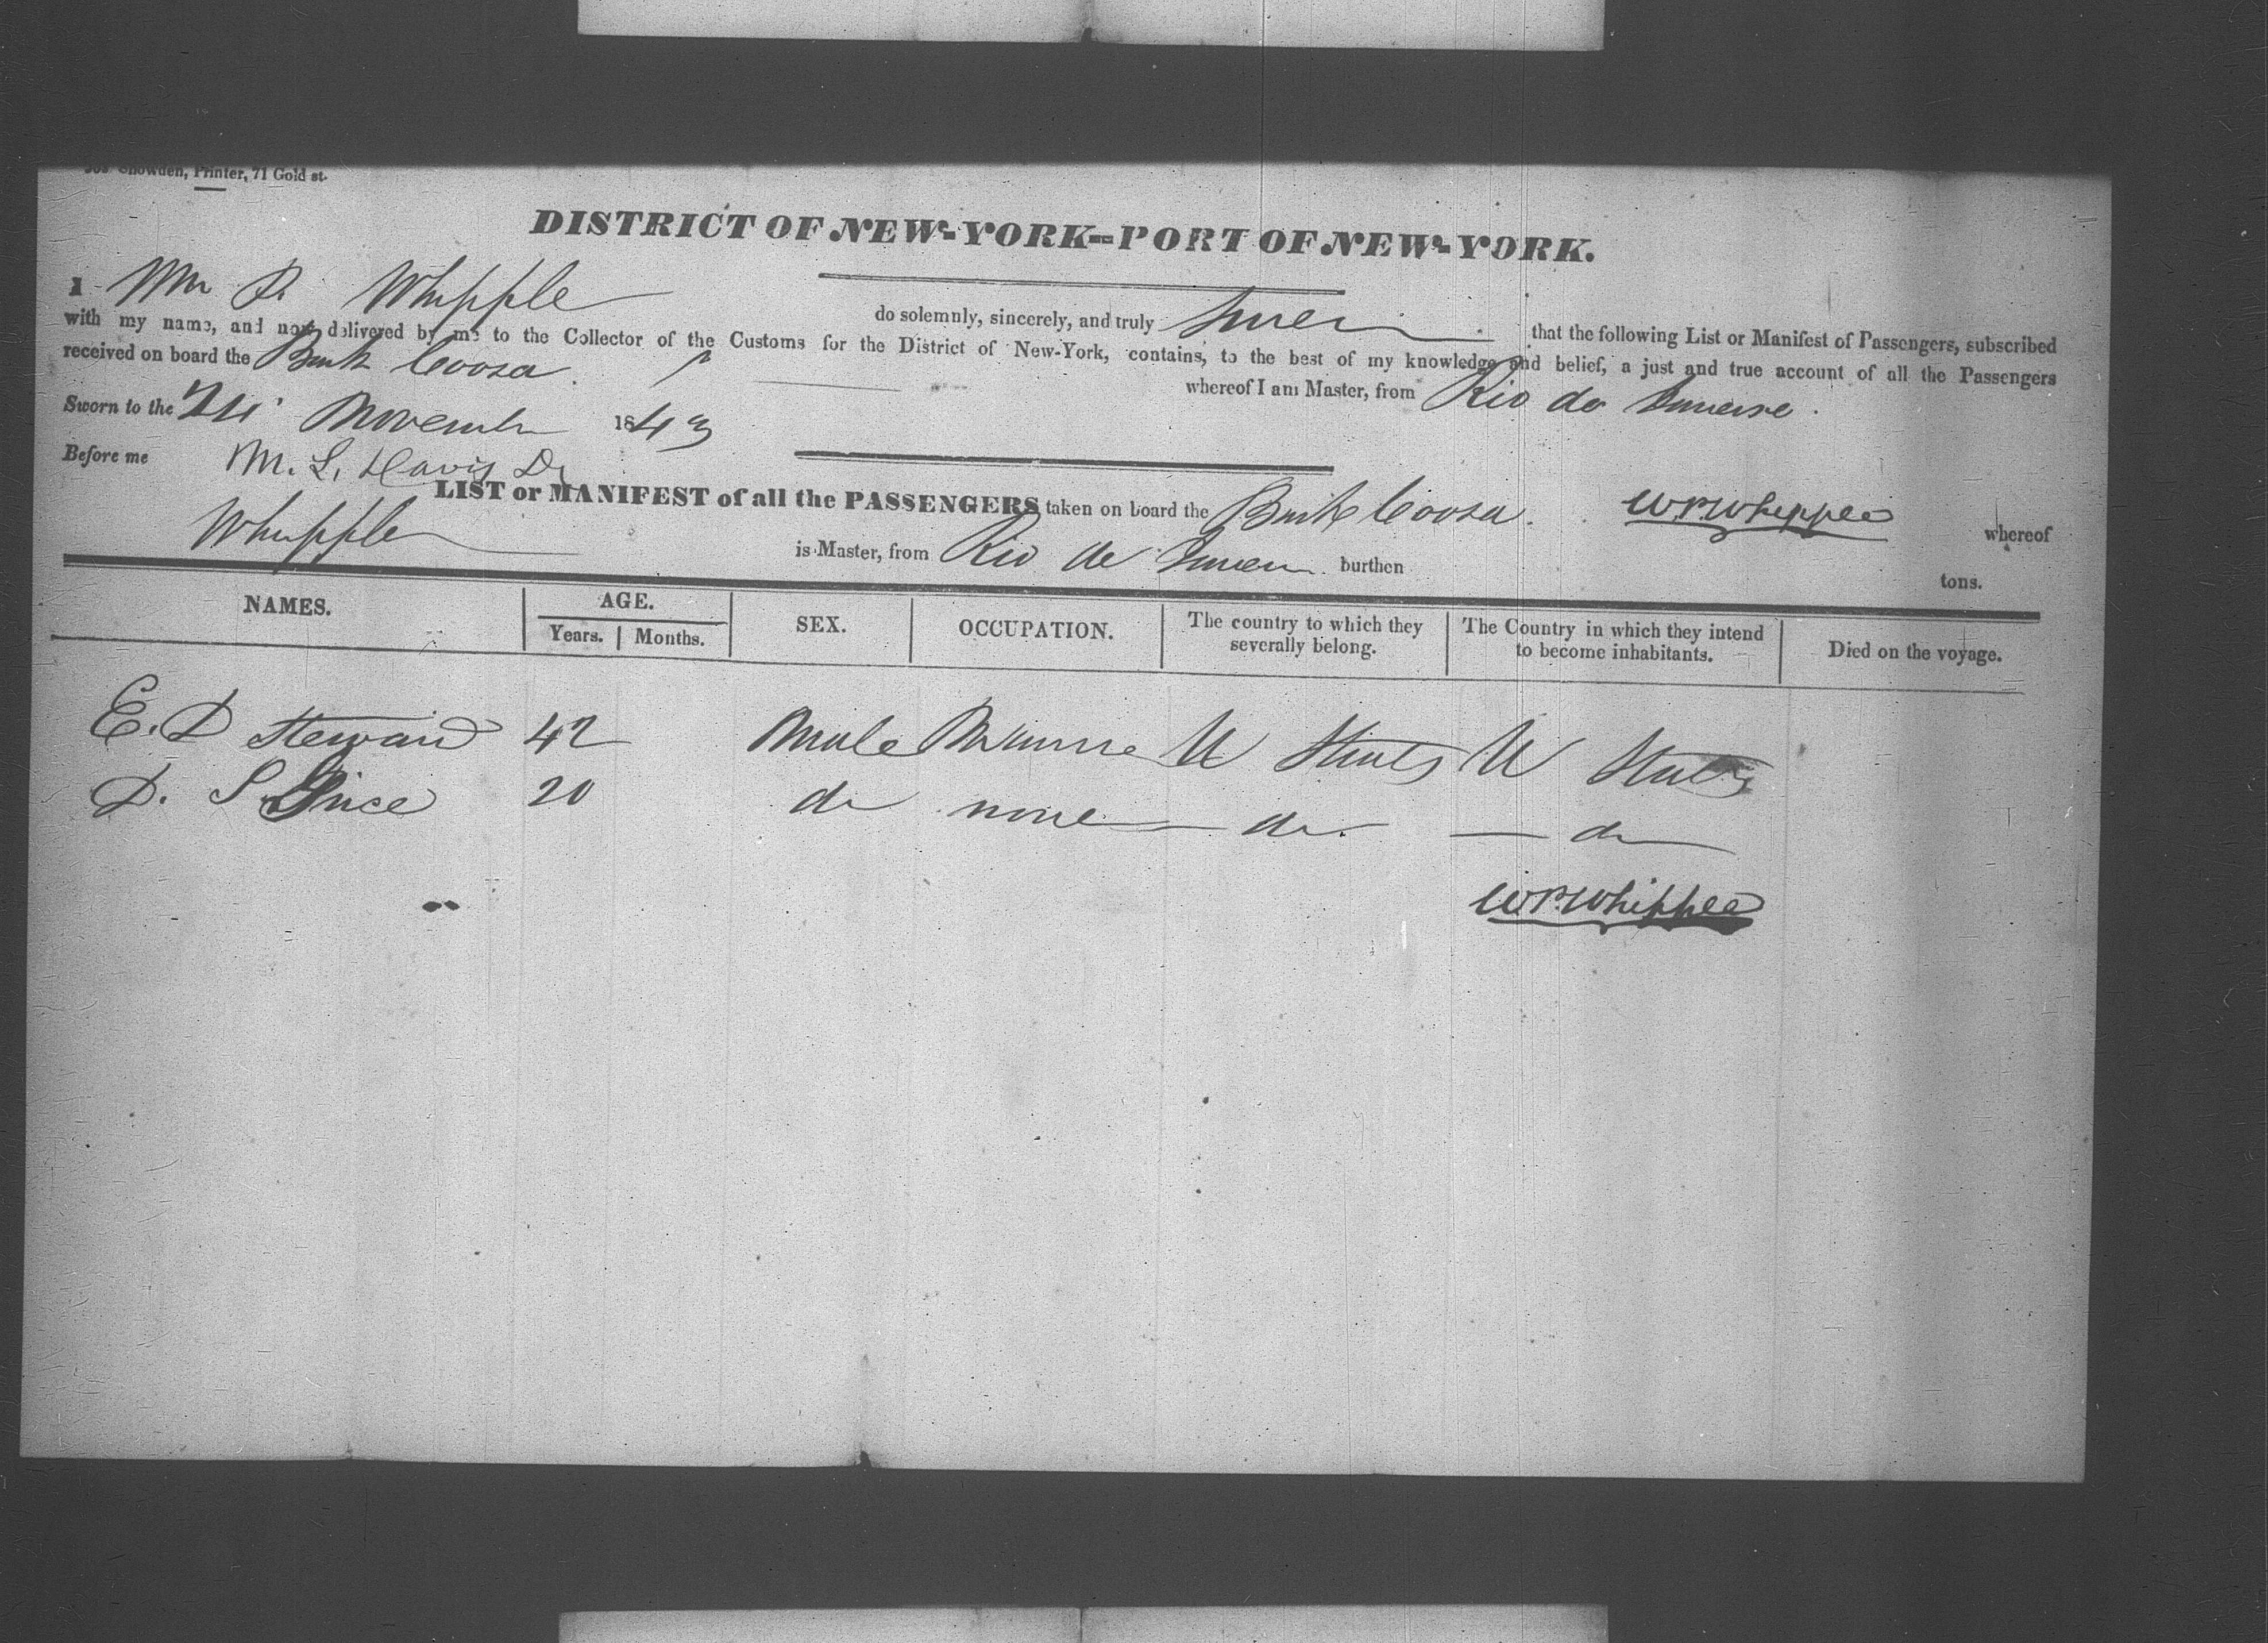 Jos Snowden, Printer, 71 Gold st.
DISTRICT OF NEW-YORK--PORT OF NEW-YORK.
I Wm P. Whipple do solemnly, sincerely, and truly Swear that the following List or Manifest of Passengers, subscribed
with my name, and now delivered by me to the Collector of the Customs for the District of New-York, contains, to the best of my knowledge and belief, a just and true account of all the Passengers
received on board the Bark Coosa whereof I am Master, from Rio de Janeiro.
Sworn to the 24 November 1843
Before me M. L. Davis
WPWhipple
LIST or MANIFEST of all the PASSENGERS taken on board the Bark Coosa. whereof
Whipple is Master, from Rio de Janeiro burthen tons.
NAMES. AGE. SEX. OCCUPATION. The country to which they severally belong. The Country in which they intend to become inhabitants. Died on the voyage.
Years. Months.
E. D Steward 42 Male U States U States
D. S 20 do none do do
WPWhipple